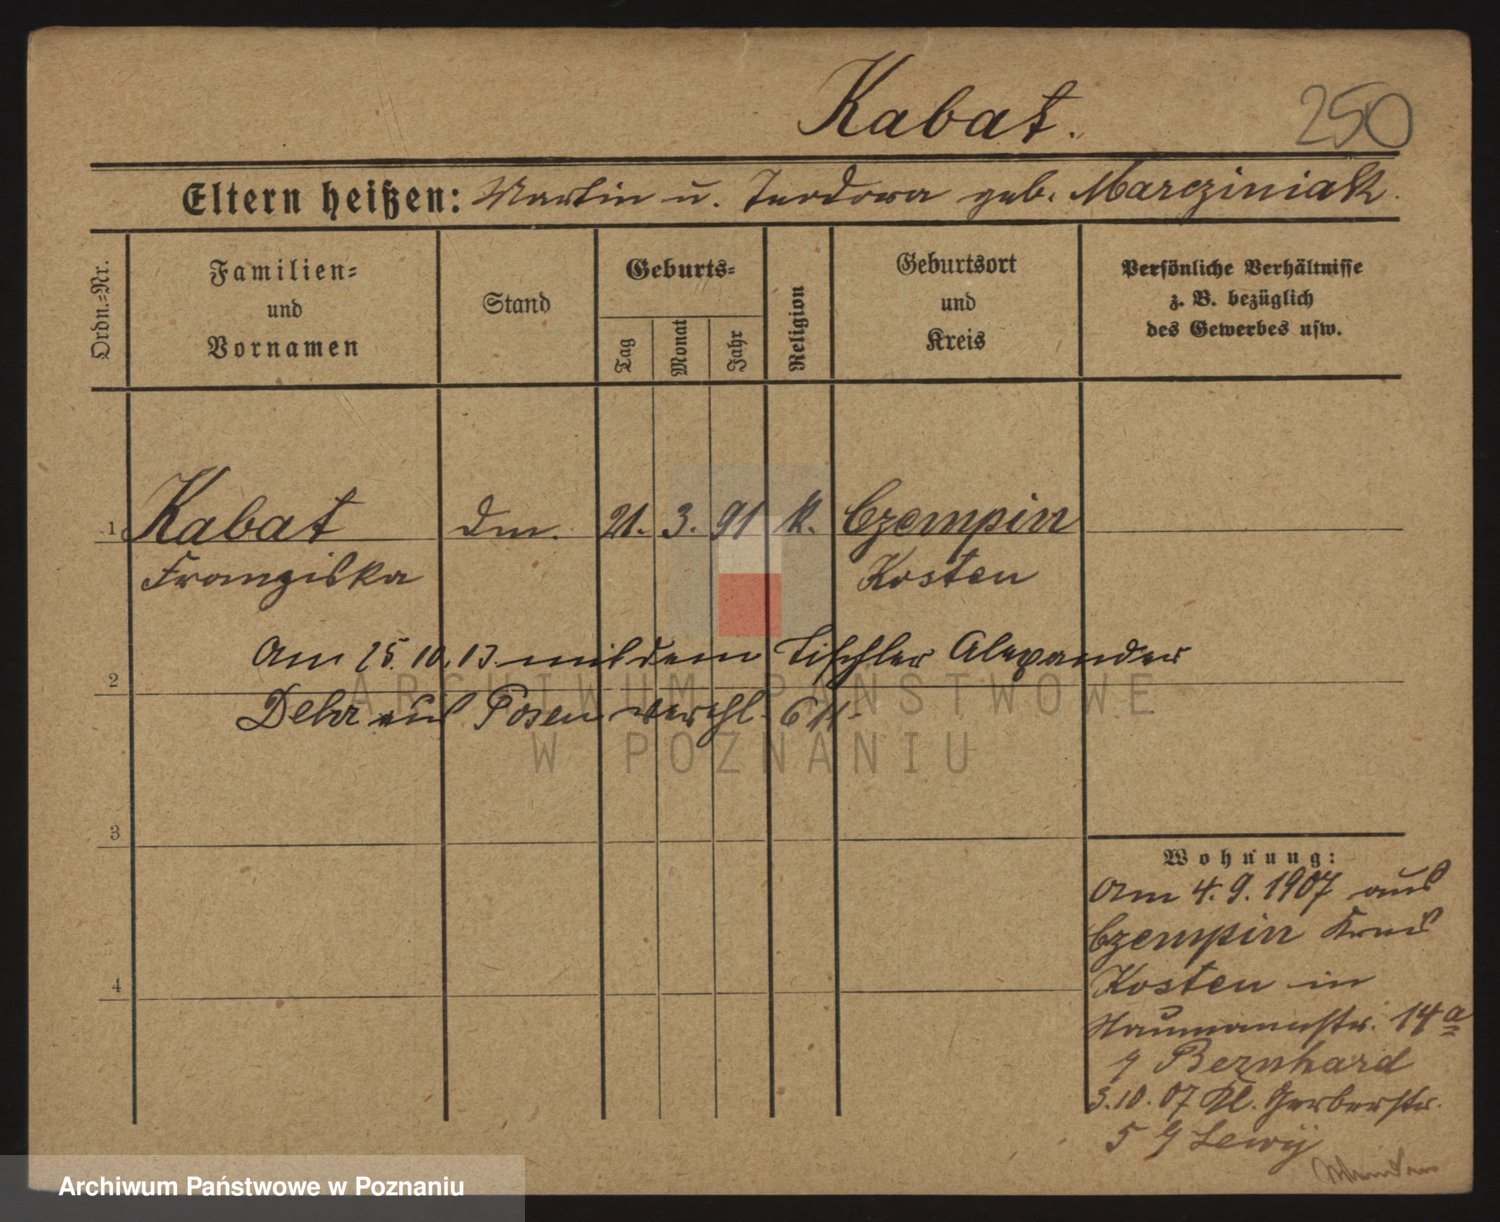 Kabat.
250
Eltern heißen: Martin u. Teodora geb. Marcziniak.
Ordn.-Nr.
Familien-
und
Vornamen
Stand
Geburts-
Tag
Monat
Jahr
Religion
Geburtsort
und
Kreis
Persönliche Verhältnisse
z. B. bezüglich
des Gewerbes usw.
1 Kabat 21. 3. 91 k. Czempin
Franziska Kosten
Am 25. 10. 13 mit dem Tischler Alexander
2
Dehr aus Posen verehl.
ARCHIWUM PAŃSTWOWE
W POZNANIU
3
4
Wohnung:
Am 4. 9. 1907 aus
Czempin Kreis
Kosten in
Naumannstr. 14 a
Bernhard
3. 10. 07 Kl. Gerberstr.
5 Lewy
Archiwum Państwowe w Poznaniu